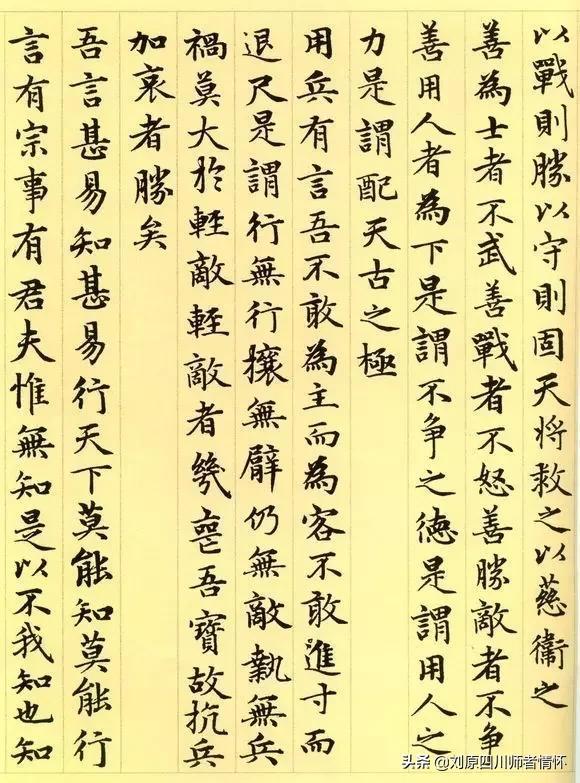 以戰則勝以守則固天將救之以慈衛之
善為士者不武善戰者不怒善勝敵者不争
善用人者為下是謂不争之德是謂用人之
力是謂配天古之極
用兵有言吾不敢為主而為客不敢進寸而
退尺是謂行無行攘無臂仍無敵執無兵
禍莫大於輕敵輕敵者幾喪吾寶故抗兵
加哀者勝矣
吾言甚易知甚易行天下莫能知莫能行
言有宗事有君夫惟無知是以不我知也知
头条 @刘原四川师者情怀